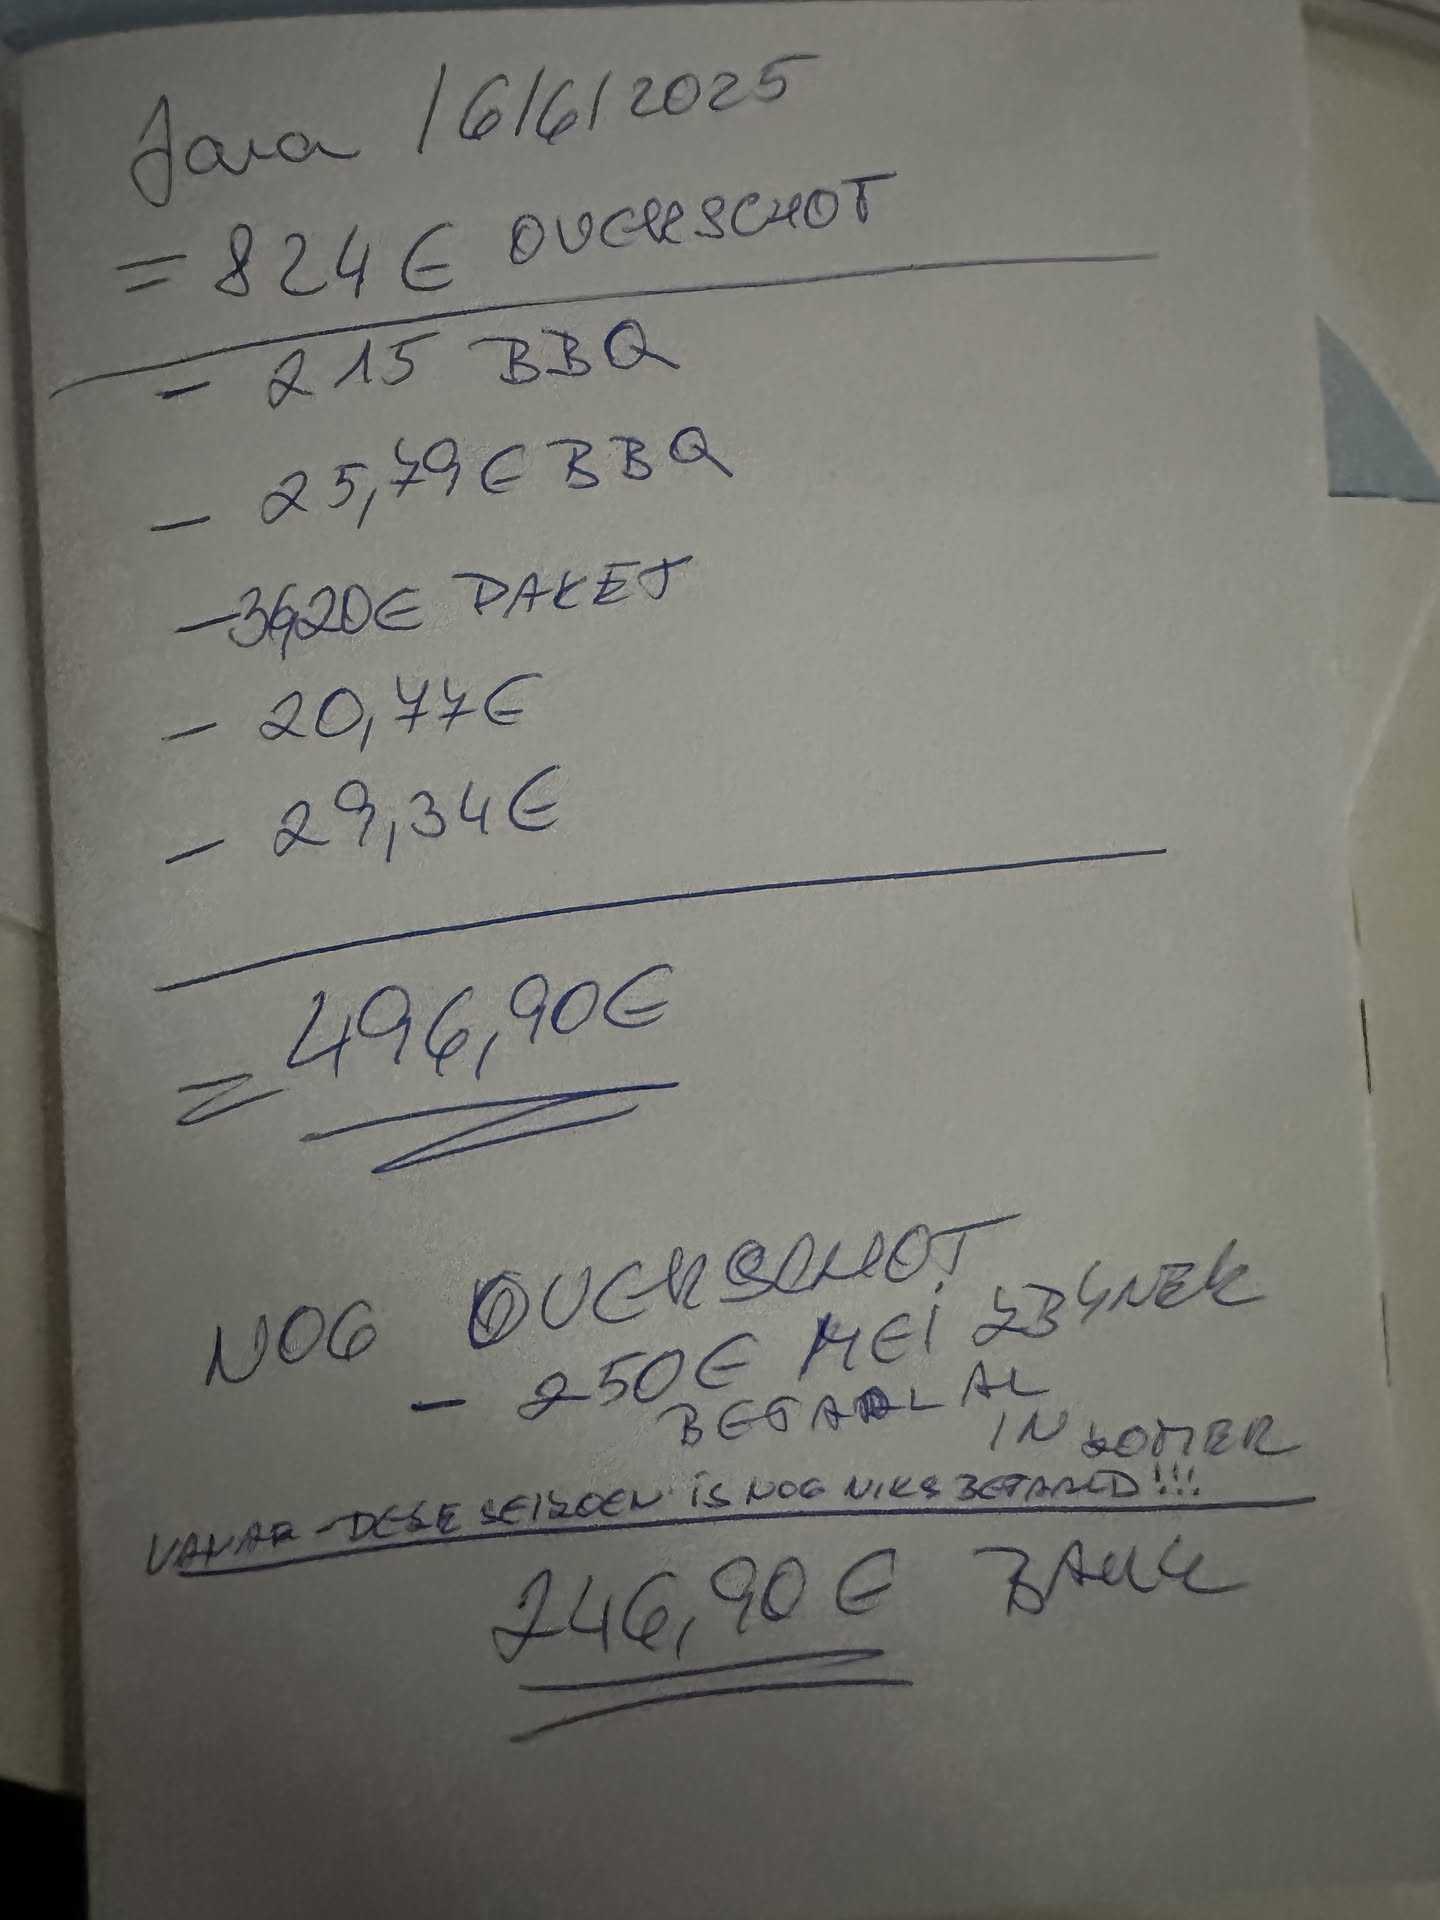 Java 16/6/2025
= 824€ OVERSCHOT
- 215 BBQ
- 25,79€ BBQ
- 36,20€ PAKET
- 20,77€
- 29,34€
= 496,90€
NOG OVERSCHOT
- 250€ MEI ZBYNEK
BETAAL AL
IN ZOMER
VANAF - DESE SEIZOEN IS NOG NIKS BETAALD!!!
246,90€ BANK